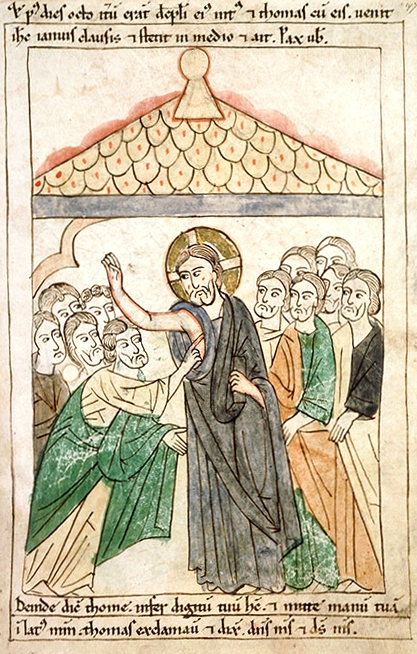 p⁹ dies octo itū erāt discipli ei⁹ int⁹ ⁊ thomas cū eis. venit
ihc ianuis clausis ⁊ stetit in medio ⁊ ait. Pax ub̄.
Deinde dic̄ thome. infer digitū tuū hc̄. ⁊ mitte manū tuā
ī lat⁹ mm̄. thomas exclamau̅ ⁊ dix̄. dn̄s m̄s ⁊ ds̄ m̄s.